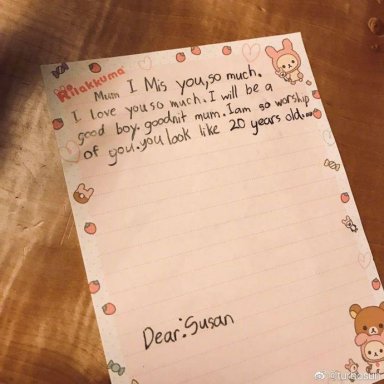 Rilakkuma
Mum I Mis you,so much.
I love you so much. I will be a
good boy. goodnit mum. I am so worship
of you. you look like 20 years old...
Dear:Susan